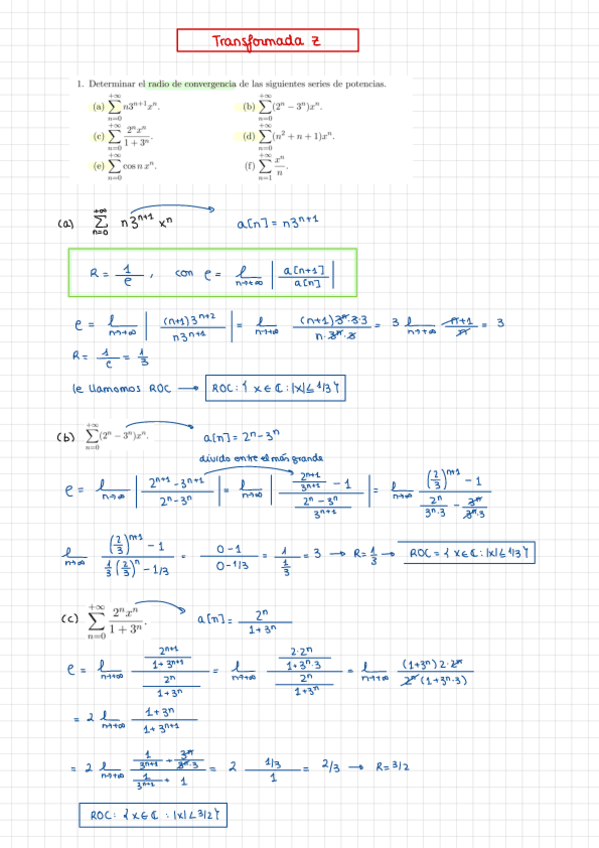 Transformada Z
1. Determinar el radio de convergencia de las siguientes series de potencias.
(a) \sum_{n=0}^{+∞} n3^{n+1}x^n. (b) \sum_{n=0}^{+∞} (2^n − 3^n)x^n.
(c) \sum_{n=0}^{+∞} \frac{2^n x^n}{1 + 3^n}. (d) \sum_{n=0}^{+∞} (n^2 + n + 1)x^n.
(e) \sum_{n=0}^{+∞} cos n x^n. (f) \sum_{n=1}^{+∞} \frac{x^n}{n}.
(a) \sum_{n=0}^{+∞} n3^{n+1} x^n a[n] = n3^{n+1}
R = \frac{1}{e}, con e = l_{n→+∞} | \frac{a[n+1]}{a[n]} |
e = l_{n→+∞} | \frac{(n+1)3^{n+2}}{n3^{n+1}} | = l_{n→+∞} \frac{(n+1)3^n·3·3}{n·3^n·3} = 3 l_{n→+∞} \frac{n+1}{n} = 3
R = \frac{1}{e} = \frac{1}{3}
le llamamos ROC → ROC: { x ∈ ℂ : |x| < 1/3 }
(b) \sum_{n=0}^{+∞} (2^n − 3^n)x^n. a[n] = 2^n - 3^n
divido entre el más grande
e = l_{n→+∞} | \frac{2^{n+1} - 3^{n+1}}{2^n - 3^n} | = l_{n→+∞} | \frac{\frac{2^{n+1}}{3^{n+1}} - 1}{\frac{2^n - 3^n}{3^{n+1}}} | = l_{n→+∞} \frac{(\frac{2}{3})^{n+1} - 1}{\frac{2^n}{3^n·3} - \frac{3^n}{3^n·3}}
l_{n→+∞} \frac{(\frac{2}{3})^{n+1} - 1}{\frac{1}{3}(\frac{2}{3})^n - 1/3} = \frac{0 - 1}{0 - 1/3} = \frac{1}{\frac{1}{3}} = 3 → R = \frac{1}{3} → ROC = { x ∈ ℂ : |x| < 1/3 }
(c) \sum_{n=0}^{+∞} \frac{2^n x^n}{1 + 3^n}. a[n] = \frac{2^n}{1 + 3^n}
e = l_{n→+∞} \frac{\frac{2^{n+1}}{1+3^{n+1}}}{\frac{2^n}{1+3^n}} = l_{n→+∞} \frac{\frac{2·2^n}{1+3^n·3}}{\frac{2^n}{1+3^n}} = l_{n→+∞} \frac{(1+3^n)2·2^n}{2^n(1+3^n·3)}
= 2 l_{n→+∞} \frac{1+3^n}{1+3^{n+1}}
= 2 l_{n→+∞} \frac{\frac{1}{3^{n+1}} + \frac{3^n}{3^n·3}}{\frac{1}{3^{n+1}} + 1} = 2 \frac{1/3}{1} = 2/3 → R = 3/2
ROC: { x ∈ ℂ : |x| < 3/2 }